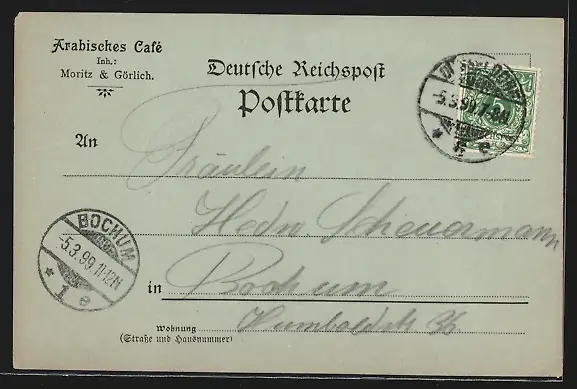 Arabisches Café
Inh.:
Moritz & Görlich.
Deutsche Reichspost
Postkarte
5
-5.3.99.7-8N.
* e
An
Fräulein
Hedw Scheuermann
BOCHUM
-5.3.99.11-12N
* 1 e
in Bochum
Wohnung Humboldstr 36
(Straße und Hausnummer)